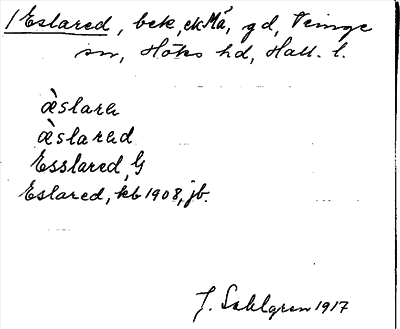 1 Eslared, bek, ekMå, gd, Veinge
sn, Höks hd, Hall. l.
æ̀slarə
æ̀slarəd
Esslared, G
Eslared, kb 1908, jb.
J. Sahlgren 1917